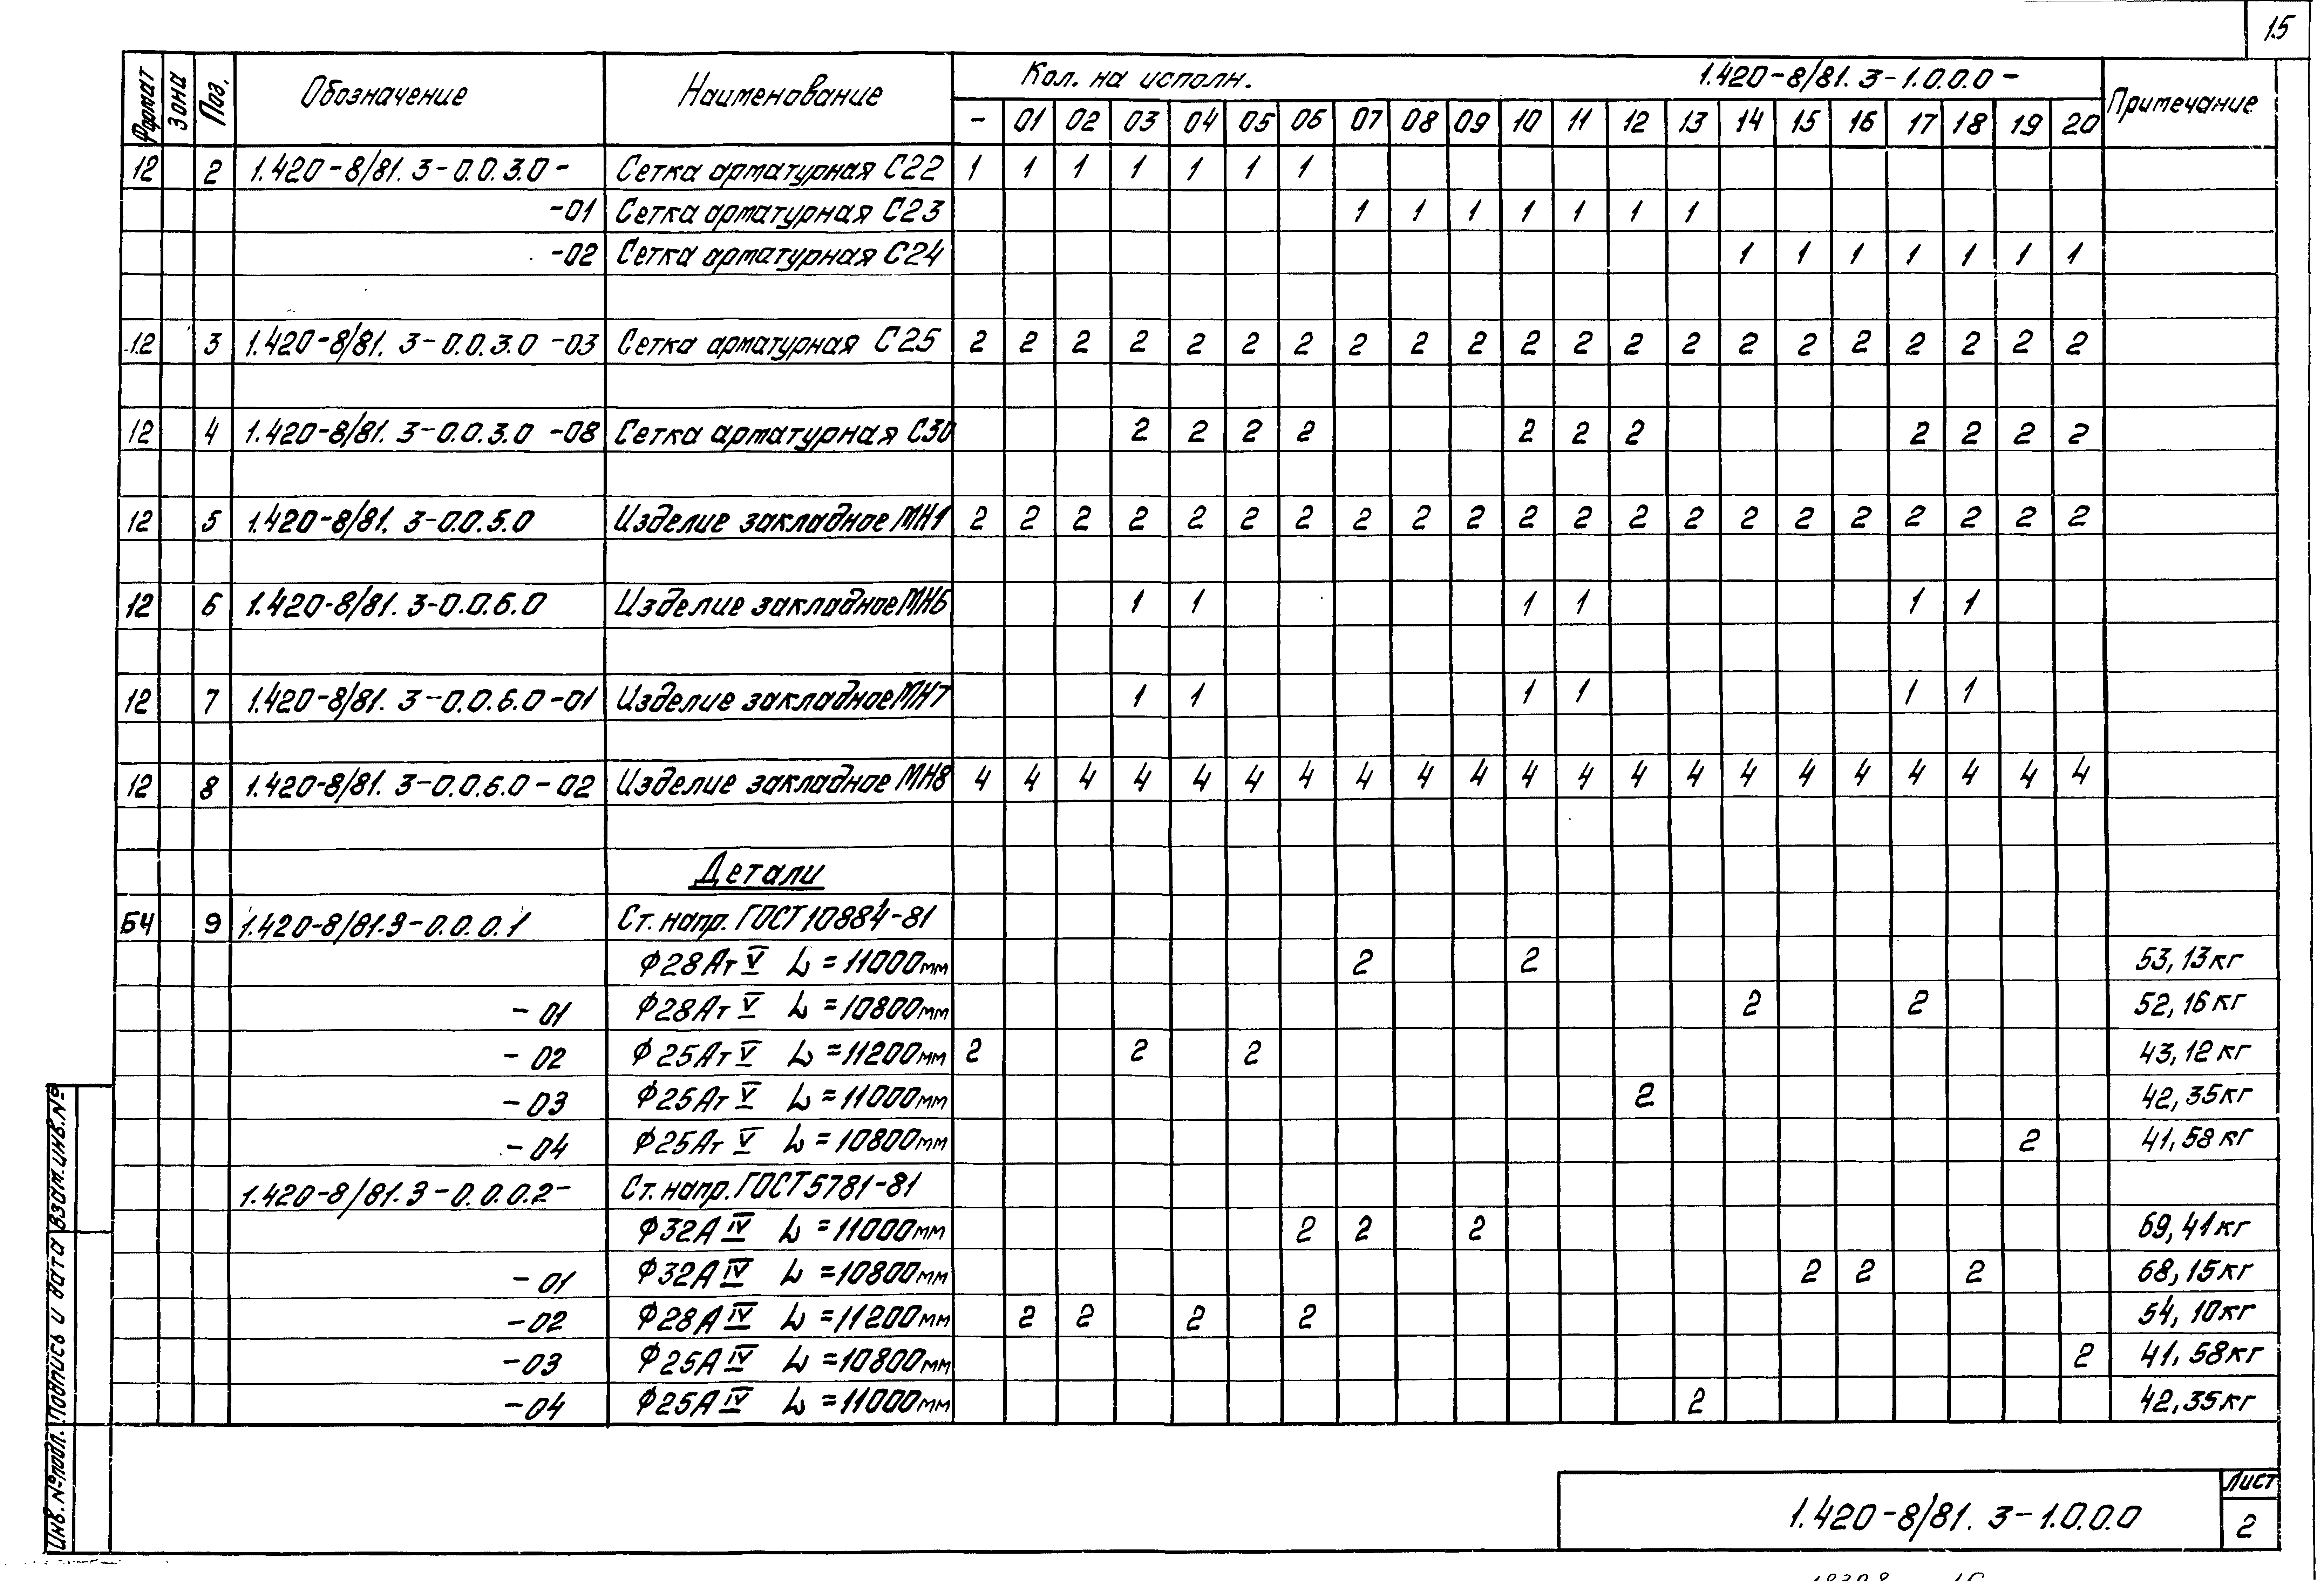 15
Формат Зона Поз. Обозначение Наименование Кол. на исполн. 1.420-8/81. 3-1.0.0.0- Примечание
- 01 02 03 04 05 06 07 08 09 10 11 12 13 14 15 16 17 18 19 20
12 2 1.420-8/81. 3-0.0.3.0- Сетка арматурная С22 1 1 1 1 1 1 1
-01 Сетка арматурная С23 1 1 1 1 1 1 1
-02 Сетка арматурная С24 1 1 1 1 1 1 1
12 3 1.420-8/81. 3-0.0.3.0 -03 Сетка арматурная С25 2 2 2 2 2 2 2 2 2 2 2 2 2 2 2 2 2 2 2 2 2
12 4 1.420-8/81. 3-0.0.3.0 -08 Сетка арматурная С30 2 2 2 2 2 2 2 2 2 2 2
12 5 1.420-8/81. 3-0.0.5.0 Изделие закладное МН1 2 2 2 2 2 2 2 2 2 2 2 2 2 2 2 2 2 2 2 2 2
12 6 1.420-8/81. 3-0.0.6.0 Изделие закладное МН6 1 1 1 1 1 1
12 7 1.420-8/81. 3-0.0.6.0-01 Изделие закладное МН7 1 1 1 1 1 1
12 8 1.420-8/81. 3-0.0.6.0-02 Изделие закладное МН8 4 4 4 4 4 4 4 4 4 4 4 4 4 4 4 4 4 4 4 4 4
Детали
БЧ 9 1.420-8/81.3-0.0.0.1 Ст. напр. ГОСТ 10884-81
Ф28Ат V L=11000мм 2 2 53,13кг
-01 Ф28Ат V L=10800мм 2 2 52,16кг
-02 Ф25Ат V L=11200мм 2 2 2 43,12кг
-03 Ф25Ат V L=11000мм 2 42,35кг
-04 Ф25Ат V L=10800мм 2 41,58кг
1.420-8/81.3-0.0.0.2- Ст. напр. ГОСТ 5781-81
Ф32А IV L=11000мм 2 2 2 69,41кг
-01 Ф32А IV L=10800мм 2 2 2 68,15кг
-02 Ф28А IV L=11200мм 2 2 2 2 54,10кг
-03 Ф25А IV L=10800мм 2 41,58кг
-04 Ф25А IV L=11000мм 2 42,35кг
Инв. № подл. Подпись и дата Взам. инв. №
1.420-8/81. 3-1.0.0.0
Лист
2